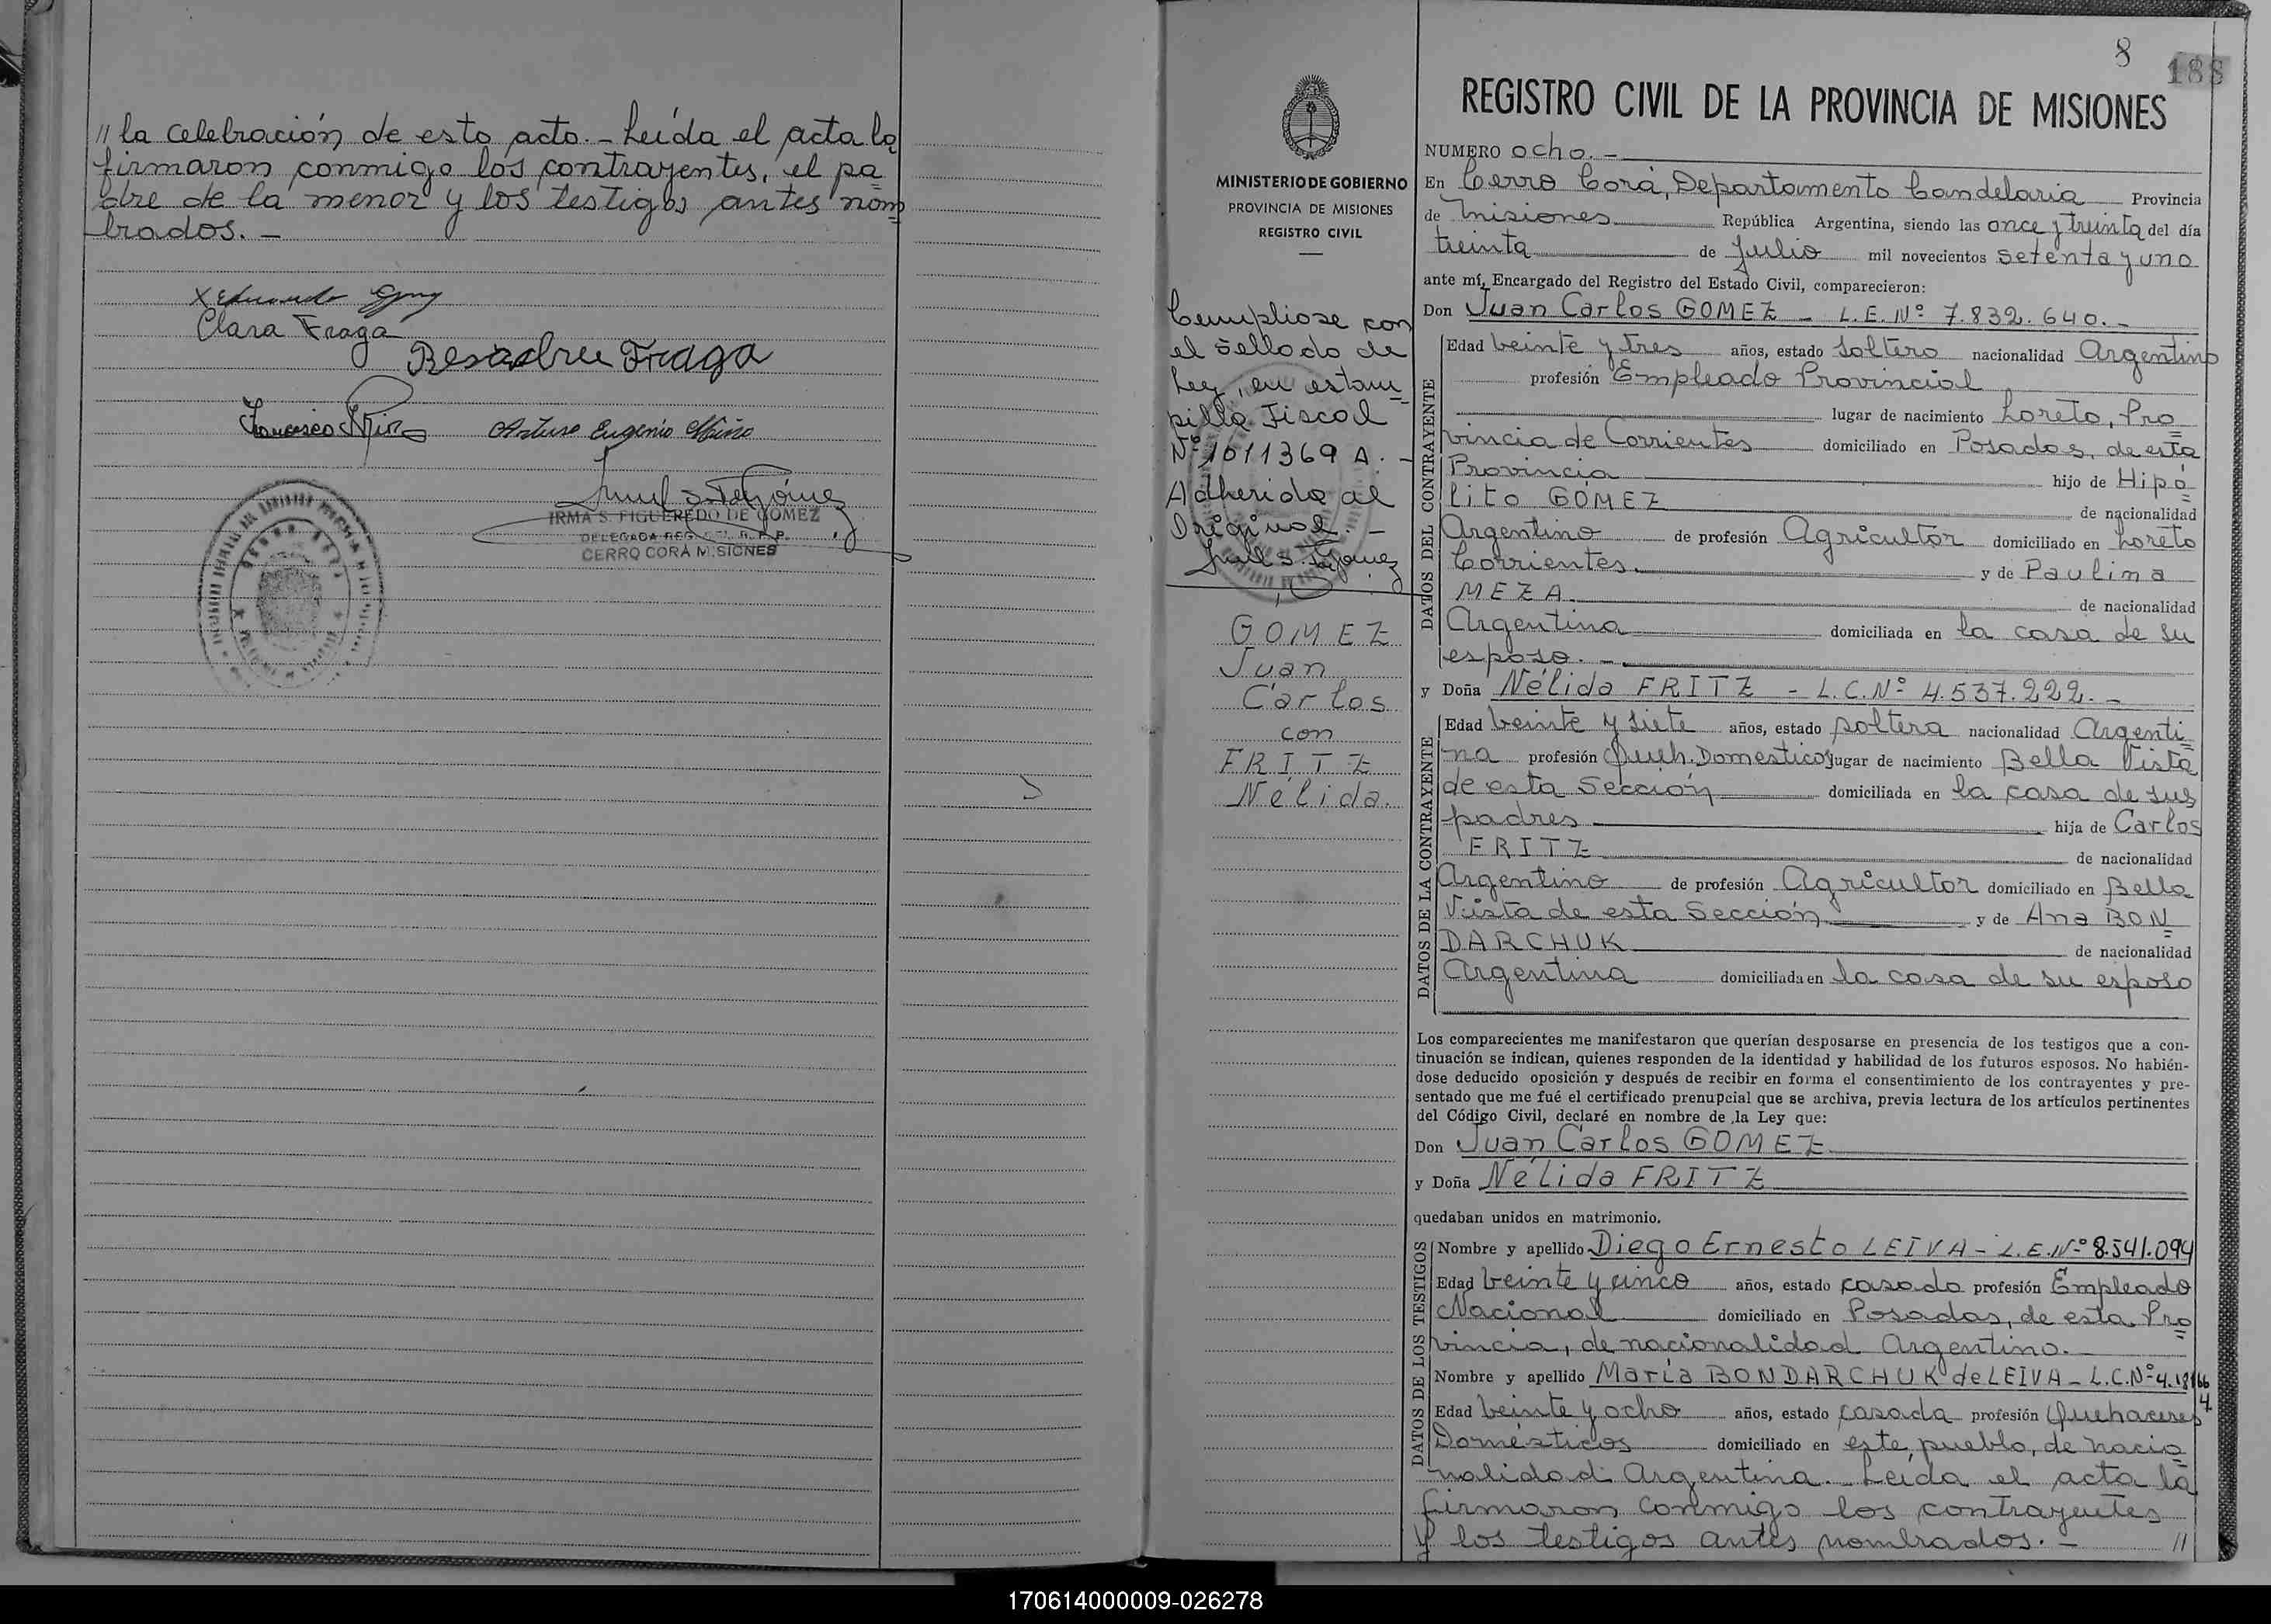 // la celebración de esto acto. - Leída el acta la
firmaron conmigo los contrayentes, el pa=
dre de la menor y los testigos antes nom=
brados. -
Clara Fraga
Fraga
Francisco
Arturo Eugenio Niño
IRMA S. FIGUEREDO DE GOMEZ
DELEGADA REG.
CERRO CORÁ MISIONES
8
188
REGISTRO CIVIL DE LA PROVINCIA DE MISIONES
MINISTERIO DE GOBIERNO
PROVINCIA DE MISIONES
REGISTRO CIVIL
Cumpliose con
el sellado de
Ley, en estam=
pilla Fiscal
Nº 1011369 A. -
Adherida al
Original. -
GOMEZ
Juan
Carlos
con
FRITZ
Nélida.
NUMERO ocho. -
En Cerro Corá, Departamento Candelaria Provincia
de Misiones República Argentina, siendo las once y treinta del día
treinta de Julio mil novecientos setenta y uno
ante mí, Encargado del Registro del Estado Civil, comparecieron:
Don Juan Carlos GOMEZ - L.E. Nº 7.832.640. -
DATOS DEL CONTRAYENTE
Edad veinte y tres años, estado soltero nacionalidad Argentino
profesión Empleado Provincial
lugar de nacimiento Loreto, Pro=
vincia de Corrientes domiciliado en Posadas, de esta
Provincia hijo de Hipó=
lito GOMEZ de nacionalidad
Argentino de profesión Agricultor domiciliado en Loreto
Corrientes. y de Paulina
MEZA. de nacionalidad
Argentina domiciliada en la casa de su
esposo. -
y Doña Nélida FRITZ - L.C. Nº 4.537.222. -
DATOS DE LA CONTRAYENTE
Edad veinte y siete años, estado soltera nacionalidad Argenti=
na profesión Queh. Domesticos lugar de nacimiento Bella Vista
de esta Sección domiciliada en la casa de sus
padres hija de Carlos
FRITZ de nacionalidad
Argentino de profesión Agricultor domiciliado en Bella
Vista de esta Sección y de Ana BON=
DARCHUK de nacionalidad
Argentina domiciliada en la casa de su esposo
Los comparecientes me manifestaron que querían desposarse en presencia de los testigos que a con-
tinuación se indican, quienes responden de la identidad y habilidad de los futuros esposos. No habién-
dose deducido oposición y después de recibir en forma el consentimiento de los contrayentes y pre-
sentado que me fué el certificado prenupcial que se archiva, previa lectura de los artículos pertinentes
del Código Civil, declaré en nombre de la Ley que:
Don Juan Carlos GOMEZ
y Doña Nélida FRITZ
quedaban unidos en matrimonio.
DATOS DE LOS TESTIGOS
Nombre y apellido Diego Ernesto LEIVA - L.E. Nº 8.541.094
Edad veinte y cinco años, estado casado profesión Empleado
Nacional domiciliado en Posadas, de esta Pro=
vincia, de nacionalidad Argentino. -
Nombre y apellido María BONDARCHUK de LEIVA - L.C. Nº
Edad veinte y ocho años, estado casada profesión Quehaceres
Domésticos domiciliado en este pueblo, de nacio=
nalidad Argentina. Leída el acta la
firmaron conmigo los contrayentes
y los testigos antes nombrados. - //
170614000009-026278